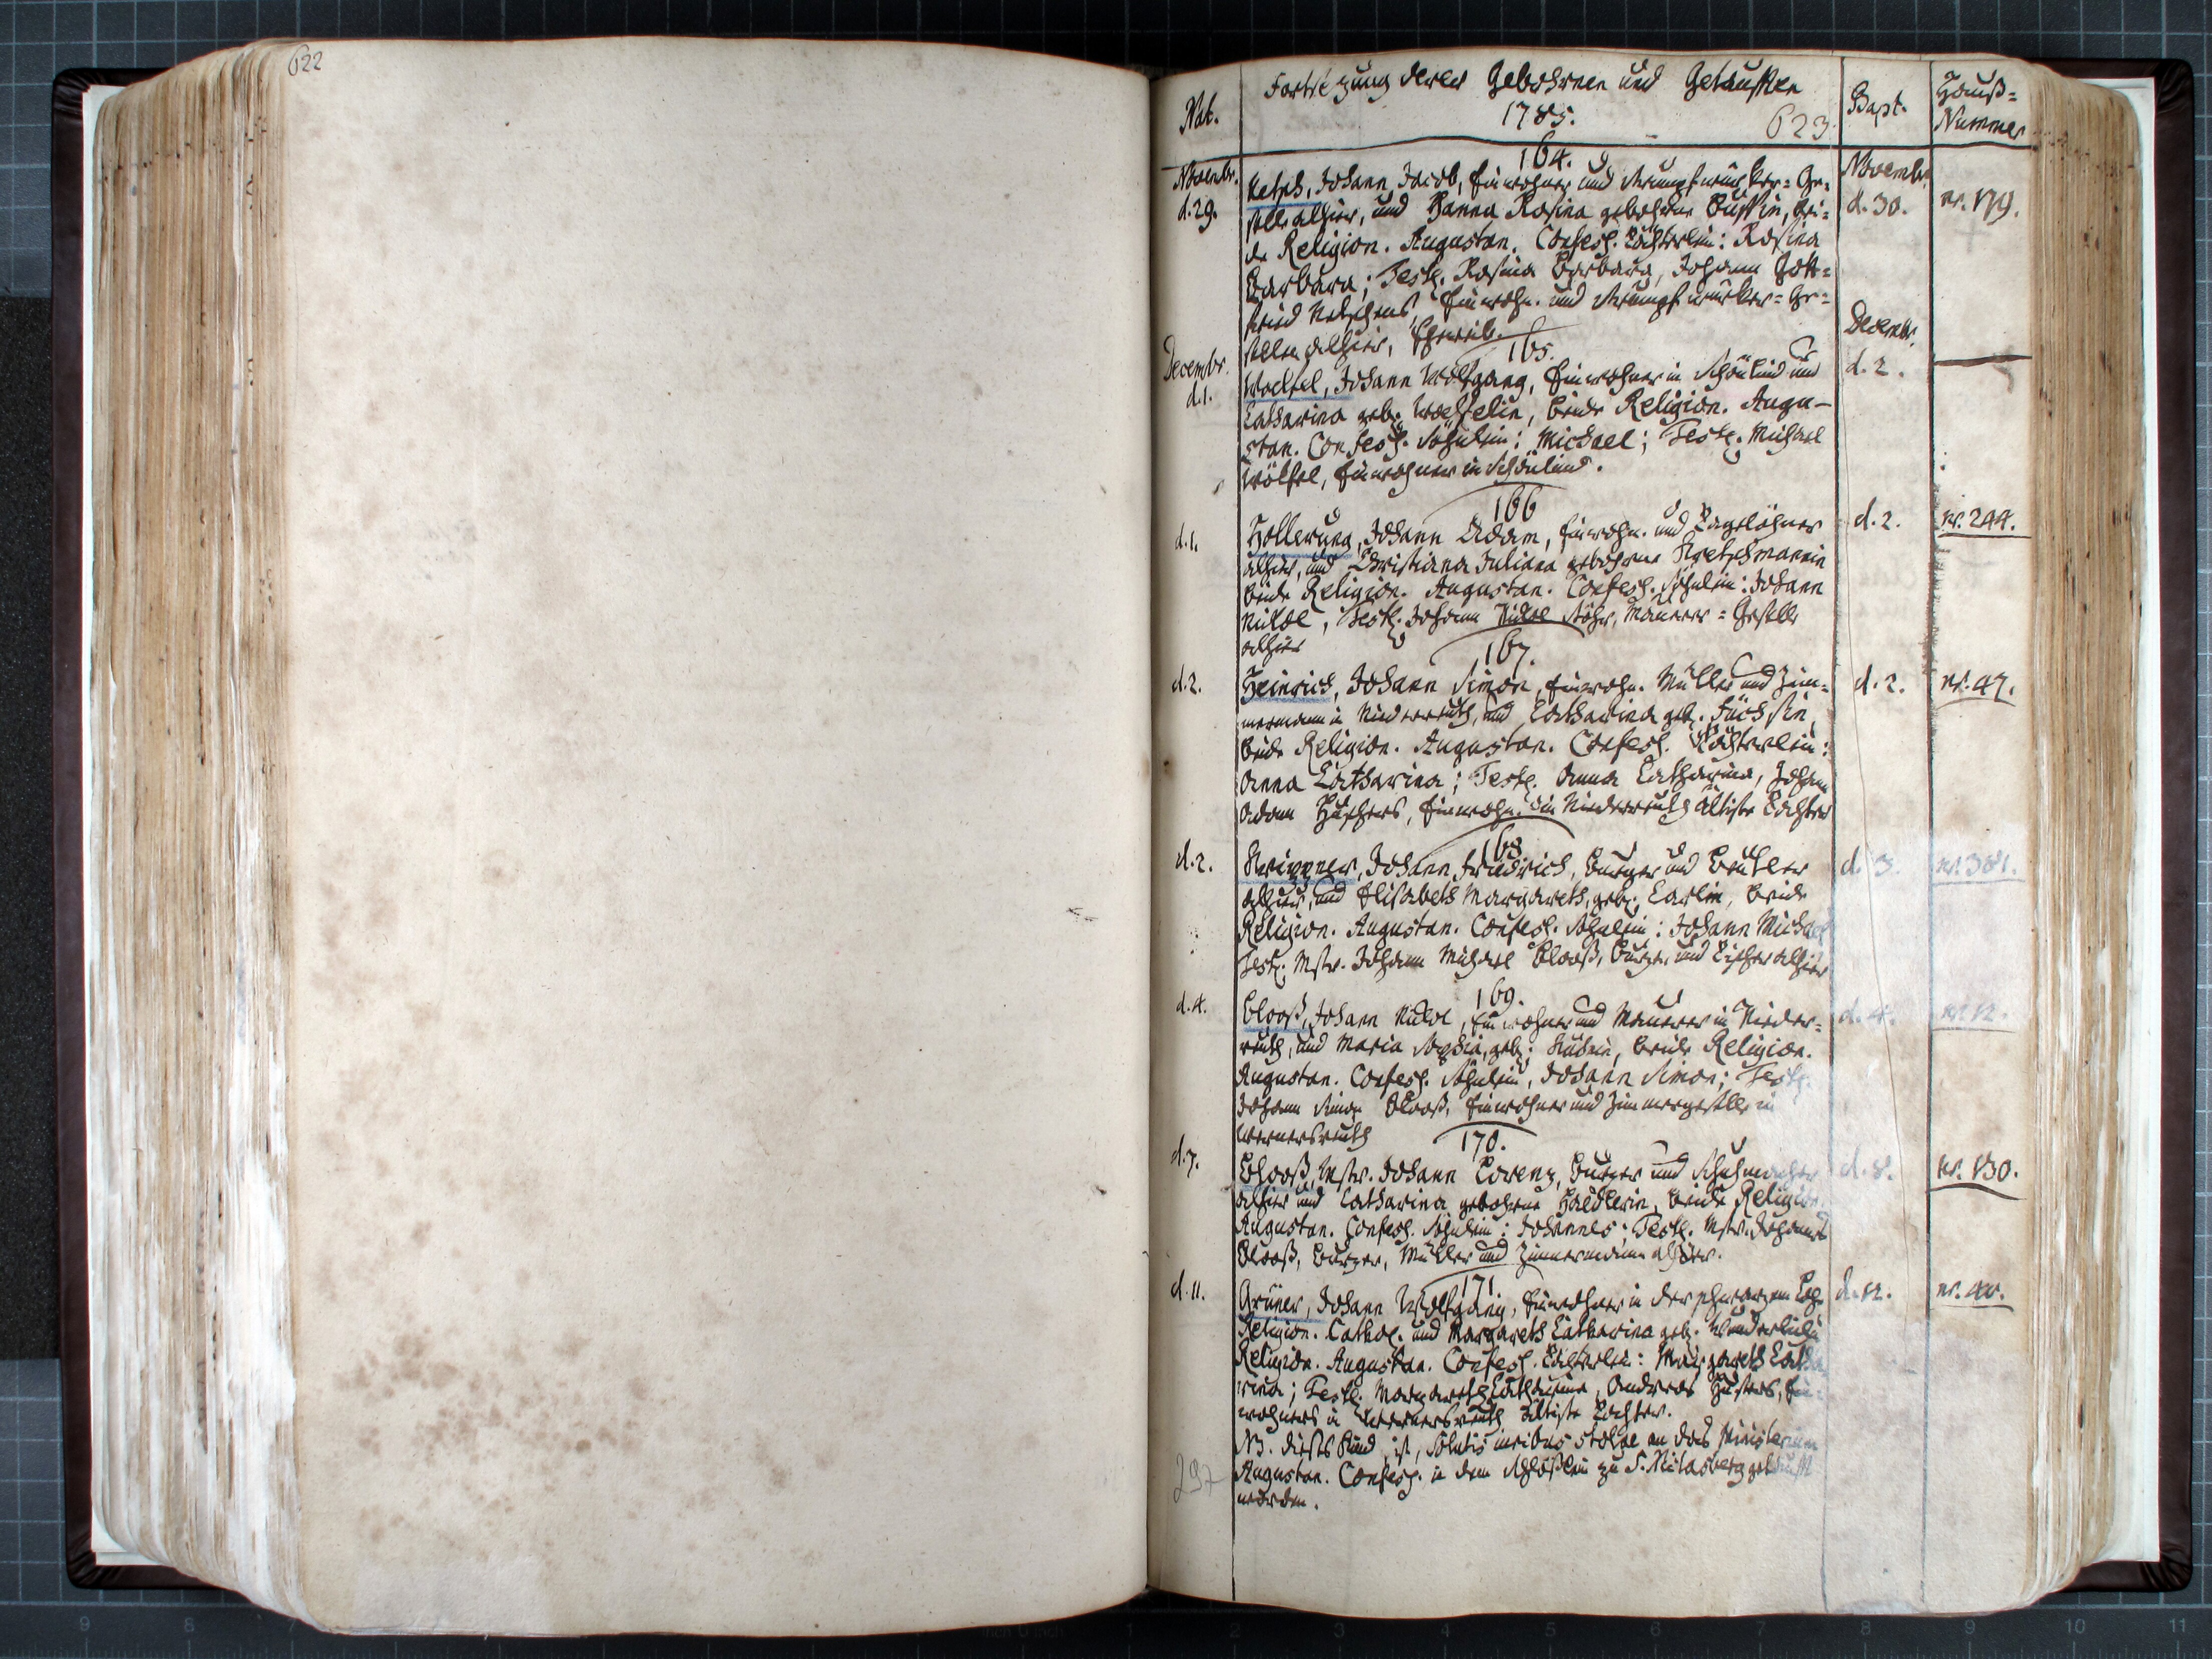 622
Fortsezung derer Gebohrnen und Getaufften
1785.
623
Nat.
Bapt.
Hauß-
Nummer
164.
Novembr.
d. 29.
Netsch, Johann Jacob, Einwohner und Strumpfwürker-Ge-
selle alhier, und Hanna Rosina gebohrne, bei-
de Religion. Augustan. Confess. Töchterlein: Rosina
Barbara; Test. Rosina Barbara, Johann Gott-
fried Netschens, Einwohn. und Strumpfwürker-Ge-
sellen alhier, Eheweib.
Novembr.
d. 30.
nr. 179.
165.
Decembr.
d. 1.
Woelfel, Johann Wolfgang, Einwohner in Schönlind und
Catharina geb. Woelfelin, beide Religion. Augu-
stan. Confess. Söhnlein: Michael; Test. Michael
Wölfel, Einwohner in Schönlind.
Decembr.
d. 2.
166
d. 1.
Hollerung, Johann Adam, Einwohn. und Tagelöhner
alhier, und Christiana Juliana gebohrne Kretschmannin
beide Religion. Augustan. Confess. Söhnlein: Johann
Nicol, Test. Johann Nicol, Maurer-Geselle
alhier
d. 2.
nr. 244.
167.
d. 2.
Heinrich, Johann Simon, Einwohn. Müller und Zim-
mermann in Niederreuth, und Catharina geb.
beide Religion. Augustan. Confess. Töchterlein:
Anna Catharina; Test. Anna Catharina, Johann
Adam, Einwohn. in Niederreuth ältiste Tochter
d. 2.
nr. 47.
168
d. 2.
Krippner, Johann Friedrich, Burger und Beutler
alhier, und Elisabeth Margareth, geb. Carlin, beide
Religion. Augustan. Confess. Söhnlein: Johann Michael
Test. Mstr. Johann Michael Blooß, Burger und alhier
d. 3.
nr. 381.
169.
d. 4.
Blooß, Johann Nicol, Einwohner und Maurer in Nieder-
reuth, und Maria Sophia, geb., beide Religion.
Augustan. Confess. Söhnlein, Johann Simon; Test.
Johann Simon Blooß, Einwohner und Zimmergeselle in
Wernersreuth
d. 4.
nr. 12.
170.
d. 7.
Blooß, Mstr. Johann Lorenz, Burger und Schuhmacher
alhier und Catharina gebohrne, beide Religion.
Augustan. Confess. Söhnlein: Johannes; Test. Mstr. Johannes
Blooß, Burger, Müller und Zimmermann alhier.
d. 8.
nr. 130.
171
d. 11.
Grüner, Johann Wolfgang, Einwohner in der schwarzen
Religion. Cathol. und Margareth Catharina geb. Wunderlichin
Religion. Augustan. Confess. Töchterlein: Margareth Catha
rina; Test. Margareth Catharina, Andreas, Ein-
wohners in Wernersreuth ältiste Tochter.
NB. dieses Kind ist, solutis iuribus stolae an das Ministerium
Augustan. Confess. in dem Schlößlein zu S. Niclasberg getauft
worden.
d. 12.
297